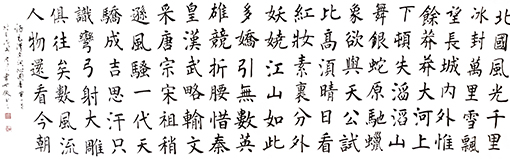 北國風光千里
冰封萬里雪飄
望長城内外惟
餘莽莽大河上
下頓失滔滔山
舞銀蛇原馳蠟
象欲與天公試
比高須晴日看
紅妝素裹分外
妖嬈江山如此
多嬌引無數英
雄競折腰惜秦
皇漢武略輸文
采唐宗宋祖稍
遜風騷一代天
驕成吉思汗只
識彎弓射大雕
俱往矣數風流
人物還看今朝